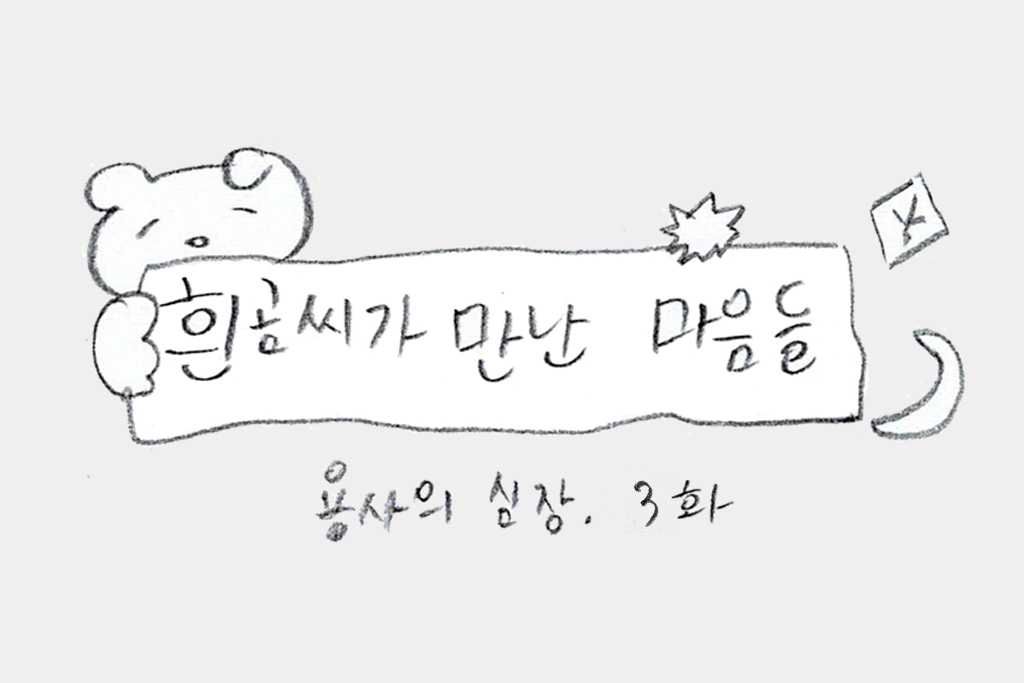 흰곰씨가 만난 마음들
용사의 심장. 3화